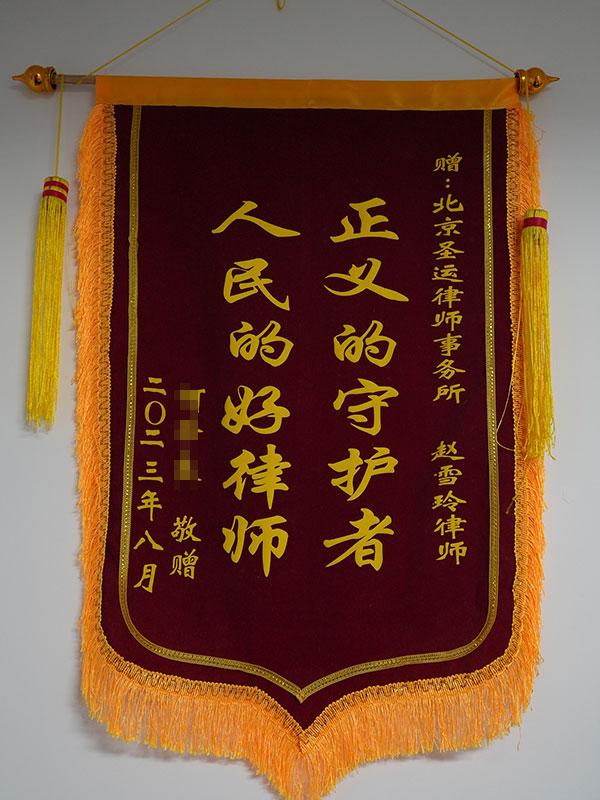 赠：北京圣运律师事务所 赵雪玲律师
正义的守护者
人民的好律师
敬赠
二〇二三年八月